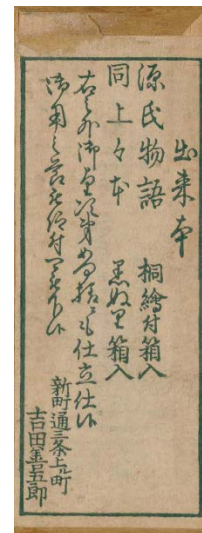 出来本
源氏物語 桐繪付箱入
同上々本 黒ぬり箱入
右之外御望次第如何様ニも仕立仕候
御用之節者被仰付可被下候
新町通三条上ル町
吉田善五郎